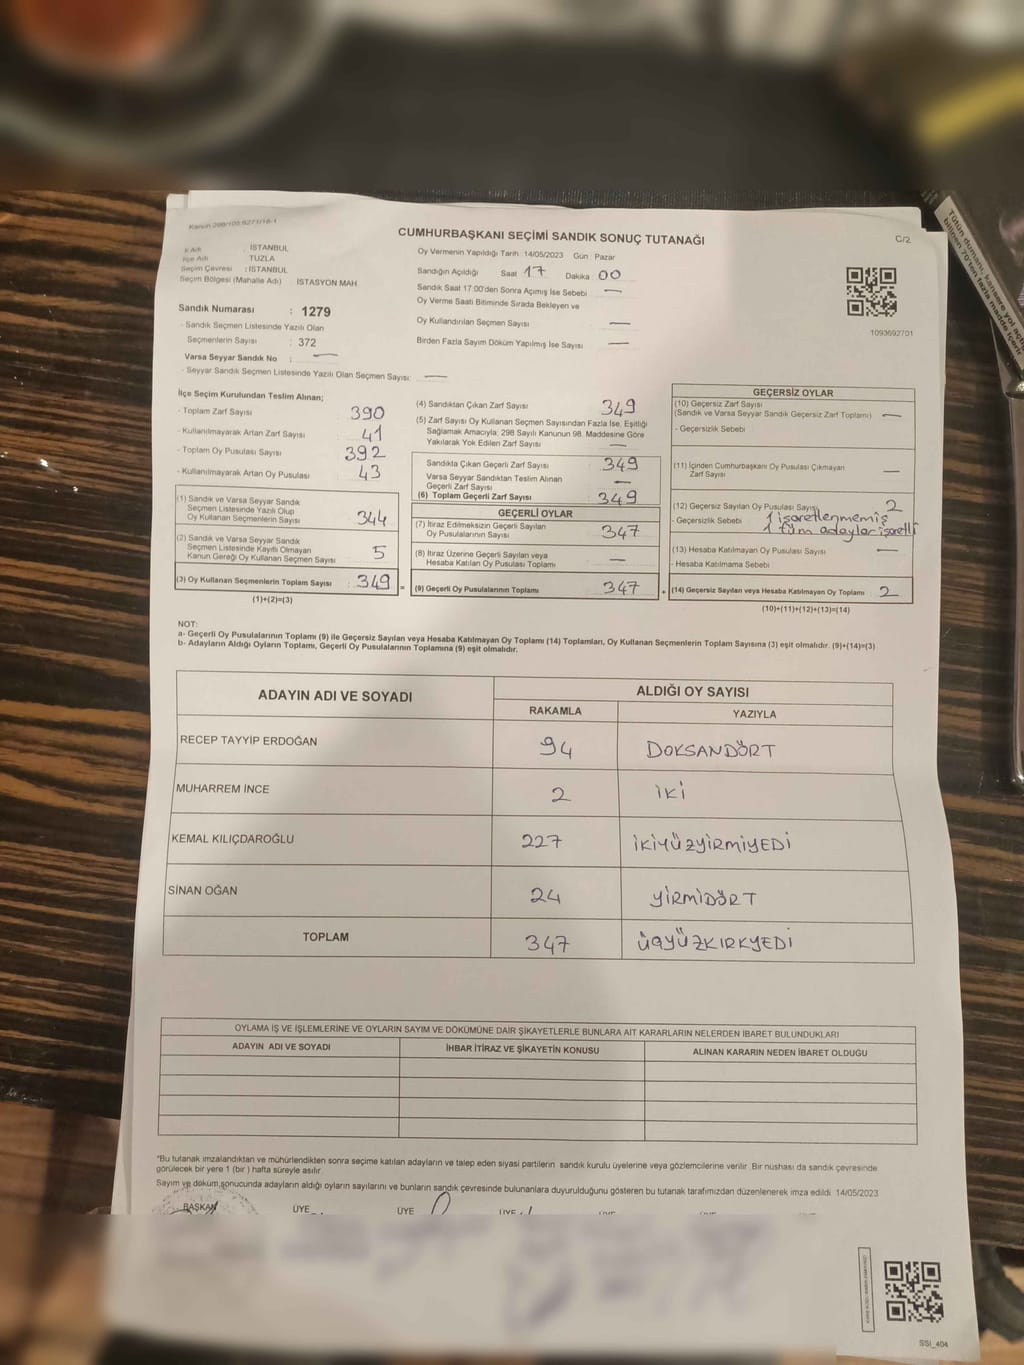 Kanun 298/105.6271/16-1
CUMHURBAŞKANI SEÇİMİ SANDIK SONUÇ TUTANAĞI
C/2
İl Adı : İSTANBUL
İlçe Adı : TUZLA
Seçim Çevresi : İSTANBUL
Seçim Bölgesi (Mahalle Adı) İSTASYON MAH.
Sandık Numarası : 1279
- Sandık Seçmen Listesinde Yazılı Olan
Seçmenlerin Sayısı : 372
Varsa Seyyar Sandık No : —
- Seyyar Sandık Seçmen Listesinde Yazılı Olan Seçmen Sayısı: —
Oy Vermenin Yapıldığı Tarih 14/05/2023 Gün Pazar
Sandığın Açıldığı Saat 17 Dakika 00
Sandık Saat 17:00'den Sonra Açımış İse Sebebi —
Oy Verme Saati Bitiminde Sırada Bekleyen ve
Oy Kullandırılan Seçmen Sayısı —
Birden Fazla Sayım Döküm Yapılmış İse Sayısı —
1093692701
İlçe Seçim Kurulundan Teslim Alınan;
- Toplam Zarf Sayısı 390
- Kullanılmayarak Artan Zarf Sayısı 41
- Toplam Oy Pusulası Sayısı 392
- Kullanılmayarak Artan Oy Pusulası 43
(1) Sandık ve Varsa Seyyar Sandık
Seçmen Listesinde Yazılı Olup
Oy Kullanan Seçmenlerin Sayısı 344
(2) Sandık ve Varsa Seyyar Sandık
Seçmen Listesinde Kayıtlı Olmayan
Kanun Gereği Oy Kullanan Seçmen Sayısı 5
(3) Oy Kullanan Seçmenlerin Toplam Sayısı : 349 =
(1)+(2)=(3)
(4) Sandıktan Çıkan Zarf Sayısı 349
(5) Zarf Sayısı Oy Kullanan Seçmen Sayısından Fazla İse, Eşitliği
Sağlamak Amacıyla; 298 Sayılı Kanunun 98. Maddesine Göre
Yakılarak Yok Edilen Zarf Sayısı —
Sandıkta Çıkan Geçerli Zarf Sayısı : 349
Varsa Seyyar Sandıktan Teslim Alınan
Geçerli Zarf Sayısı —
(6) Toplam Geçerli Zarf Sayısı : 349
GEÇERLİ OYLAR
(7) İtiraz Edilmeksizin Geçerli Sayılan
Oy Pusulalarının Sayısı : 347
(8) İtiraz Üzerine Geçerli Sayılan veya
Hesaba Katılan Oy Pusulası Toplamı : —
(9) Geçerli Oy Pusulalarının Toplamı : 347 +
GEÇERSİZ OYLAR
(10) Geçersiz Zarf Sayısı
(Sandık ve Varsa Seyyar Sandık Geçersiz Zarf Toplamı) : —
- Geçersizlik Sebebi :
(11) İçinden Cumhurbaşkanı Oy Pusulası Çıkmayan
Zarf Sayısı —
(12) Geçersiz Sayılan Oy Pusulası Sayısı 2
- Geçersizlik Sebebi : 1 işaretlenmemiş
1 tüm adaylar işaretli
(13) Hesaba Katılmayan Oy Pusulası Sayısı : —
- Hesaba Katılmama Sebebi :
(14) Geçersiz Sayılan veya Hesaba Katılmayan Oy Toplamı : 2
(10)+(11)+(12)+(13)=(14)
NOT:
a- Geçerli Oy Pusulalarının Toplamı (9) ile Geçersiz Sayılan veya Hesaba Katılmayan Oy Toplamı (14) Toplamları, Oy Kullanan Seçmenlerin Toplam Sayısına (3) eşit olmalıdır. (9)+(14)=(3)
b- Adayların Aldığı Oyların Toplamı, Geçerli Oy Pusulalarının Toplamına (9) eşit olmalıdır.
ADAYIN ADI VE SOYADI ALDIĞI OY SAYISI
RAKAMLA YAZIYLA
RECEP TAYYİP ERDOĞAN 94 DOKSANDÖRT
MUHARREM İNCE 2 İKİ
KEMAL KILIÇDAROĞLU 227 İKİYÜZYİRMİYEDİ
SİNAN OĞAN 24 YİRMİDÖRT
TOPLAM 347 ÜÇYÜZKIRKYEDİ
OYLAMA İŞ VE İŞLEMLERİNE VE OYLARIN SAYIM VE DÖKÜMÜNE DAİR ŞİKAYETLERLE BUNLARA AİT KARARLARIN NELERDEN İBARET BULUNDUKLARI
ADAYIN ADI VE SOYADI İHBAR İTİRAZ VE ŞİKAYETİN KONUSU ALINAN KARARIN NEDEN İBARET OLDUĞU
*Bu tutanak imzalandıktan ve mühürlendikten sonra seçime katılan adayların ve talep eden siyasi partilerin sandık kurulu üyelerine veya gözlemcilerine verilir. Bir nüshası da sandık çevresinde
görülecek bir yere 1 (bir ) hafta süreyle asılır.
Sayım ve döküm sonucunda adayların aldığı oyların sayılarını ve bunların sandık çevresinde bulunanlara duyurulduğunu gösteren bu tutanak tarafımızdan düzenlenerek imza edildi. 14/05/2023
BAŞKAN ÜYE ÜYE ÜYE
SSI_404
Tütün dumanı, kansere yol açtığı
bilinen 70'ten fazla madde içerir.